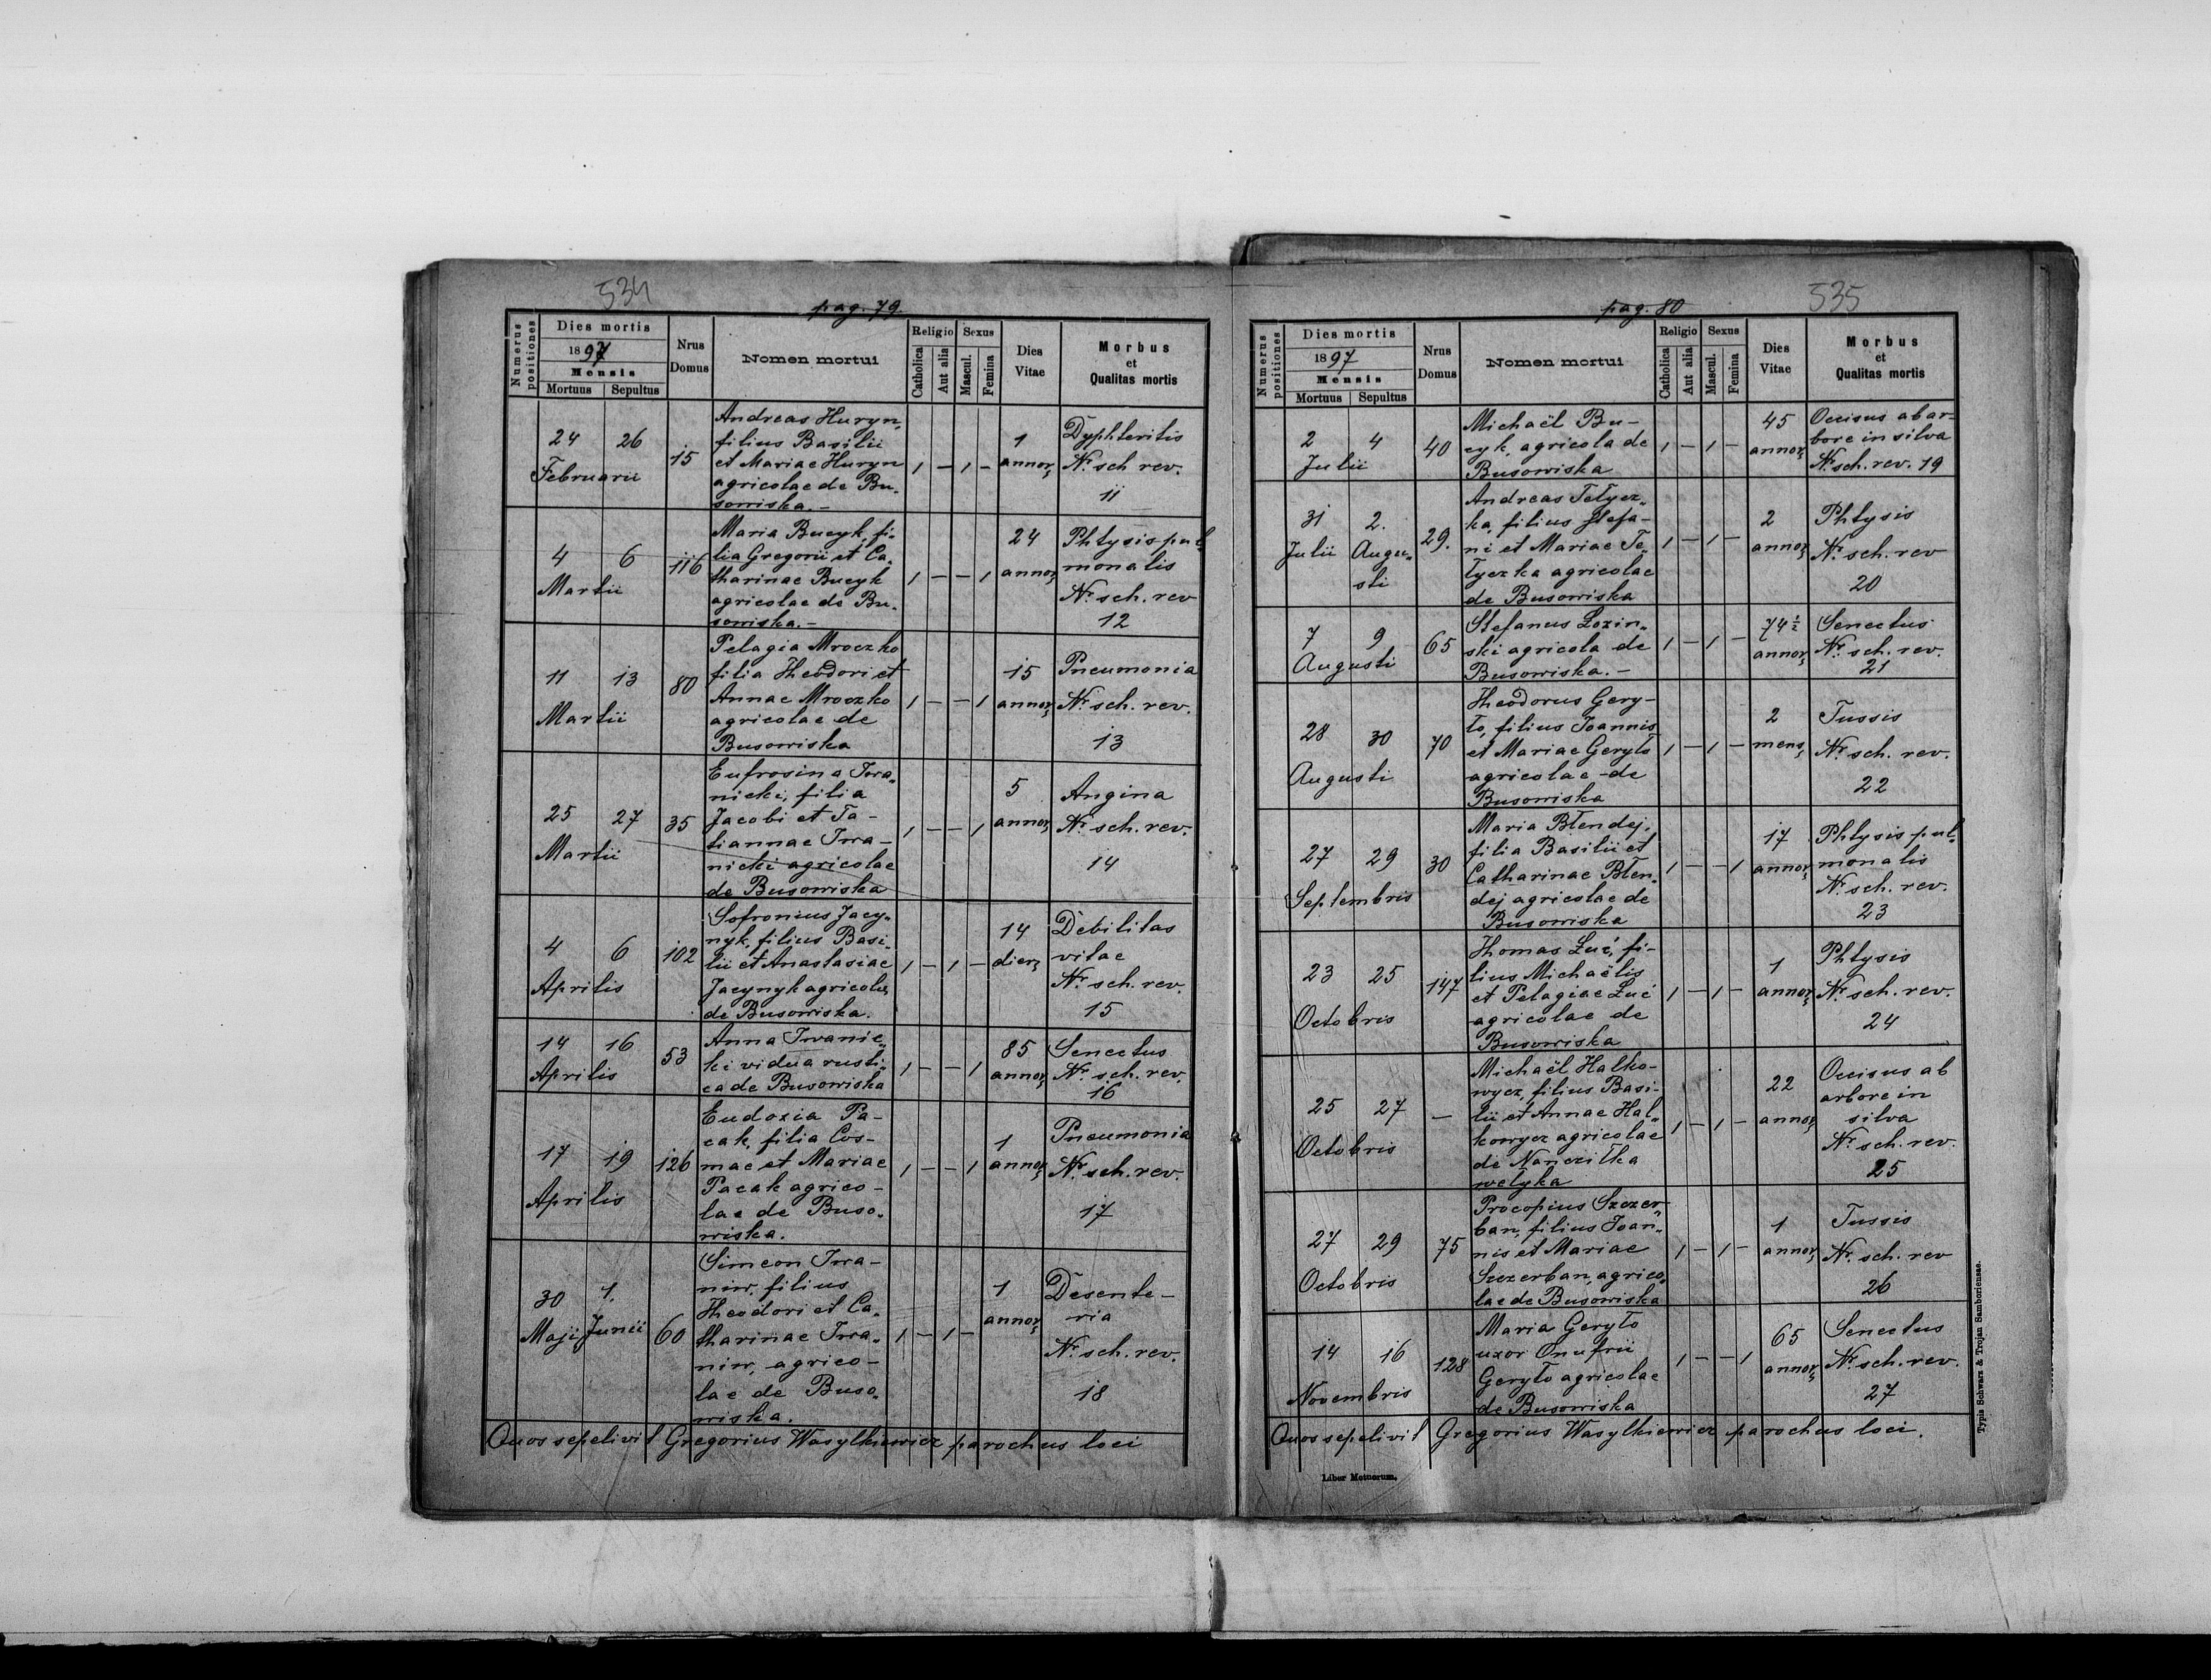 534
pag. 79.
Numerus positiones
Dies mortis
1897
Mensis
Mortuus Sepultus
Nrus Domus
Nomen mortui
Religio
Catholica
Aut alia
Sexus
Mascul.
Femina
Dies Vitae
Morbus
et
Qualitas mortis
24 26
Februarii
15
Andreas Huryn,
filius Basilii
et Mariae Huryn
agricolae de Bu-
sowiska.-
1 - 1 -
1
annor.
Dyphteritis
Nr. sch rev.
11
4 6
Martii
116
Maria Bucyk, fi-
lia Gregorii et Ca-
tharinae Bucyk
agricolae de Bu-
sowiska.-
1 - - 1
24
annor.
Phtysis pul-
monalis
Nr. sch. rev
12
11 13
Martii
80
Pelagia Mroczko
filia Theodori et
Annae Mroczko
agricolae de
Busowiska
1 - - 1
15
annor.
Pneumonia
Nr. sch. rev.
13
25 27
Martii
35
Eufrosina Iwa-
nicki, filia
Jacobi et Ta-
tiannae Iwa-
nicki agricolae
de Busowiska
1 - - 1
5
annor.
Angina
Nr. sch. rev.
14
4 6
Aprilis
102
Sofronius Jacy-
nyk, filius Basi-
lii et Anastasiae
Jacynyk agricolae
de Busowiska.
1 - 1 -
14
dier.
Debilitas
vitae
Nr. sch. rev.
15
14 16
Aprilis
53
Anna Iwanic-
ki vidua rusti-
ca de Busowiska
1 - - 1
85
annor.
Senectus
Nr. sch. rev.
16
17 19
Aprilis
126
Eudoxia Pa-
cak, filia Cos-
mae et Mariae
Pacak agrico-
lae de Buso-
wiska.
1 - - 1
1
annor.
Pneumonia
Nr. sch. rev.
17
30 1.
Maji Junii
60
Simeon Iwa-
niw, filius
Theodori et Ca-
tharinae Iwa-
niw, agrico-
lae de Buso-
wiska.
1 - 1 -
1
annor.
Desente-
ria
Nr. sch. rev.
18
Quos sepelivit Gregorius Wasylkiewicz parochus loci
535
pag. 80
Numerus positiones
Dies mortis
1897
Mensis
Mortuus Sepultus
Nrus Domus
Nomen mortui
Religio
Catholica
Aut alia
Sexus
Mascul.
Femina
Dies Vitae
Morbus
et
Qualitas mortis
2 4
Julii
40
Michaël Bu-
cyk, agricola de
Busowiska
1 - 1 -
45
annor.
Occisus ab ar-
bore in silva
Nr. sch. rev. 19
31 2.
Julii Augu-
sti
29.
Andreas Tełycz-
ka, filius Stefa-
ni et Mariae Te-
łyczka agricolae
de Busowiska
1 - 1 -
2
annor.
Phtysis
Nr. sch. rev
20
7 9
Augusti
65
Stefanus Lozin-
ski agricola de
Busowiska.-
1 - 1 -
74 1/2
annor.
Senectus
Nr. sch. rev.
21
28 30
Augusti
70
Theodorus Gery-
ło, filius Joannis
et Mariae Geryło
agricolae de
Busowiska
1 - 1 -
2
mens.
Tussis
Nr. sch. rev.
22
27 29
Septembris
30
Maria Błendej,
filia Basilii et
Catharinae Błen-
dej agricolae de
Busowiska
1 - - 1
17
annor.
Phtysis pul-
monalis
Nr. sch. rev.
23
23 25
Octobris
147
Thomas Luć, fi-
lius Michaëlis
et Pelagiae Luć
agricolae de
Busowiska
1 - 1 -
1
annor.
Phtysis
Nr. sch. rev.
24
25 27
Octobris
-
Michaël Halko-
wycz, filius Basi-
lii et Annae Hal-
kowycz agricolae
de Nanczułka
welyka
1 - 1 -
22
annor.
Occisus ab
arbore in
silva
Nr. sch. rev.
25
27 29
Octobris
75
Procopius Szczer-
ban, filius Joan-
nis et Mariae
Szczerban, agrico-
lae de Busowiska
1 - 1 -
1
annor.
Tussis
Nr. sch. rev
26
14 16
Novembris
128
Maria Geryło
uxor Onufrii
Geryło agricolae
de Busowiska
1 - - 1
65
annor.
Senectus
Nr. sch. rev.
27
Quos sepelivit Gregorius Wasylkiewicz parochus loci.
Liber Motuorum.
Typis Schwarz & Trojan Samboriensae.